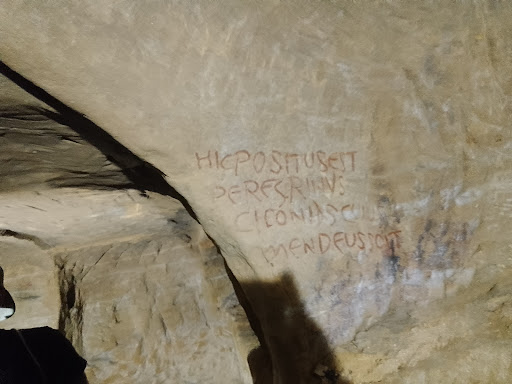 HICPOSITUSEIT
PEREGRINUS
CICONIASCUIUS
NOMENDEUSSCIT